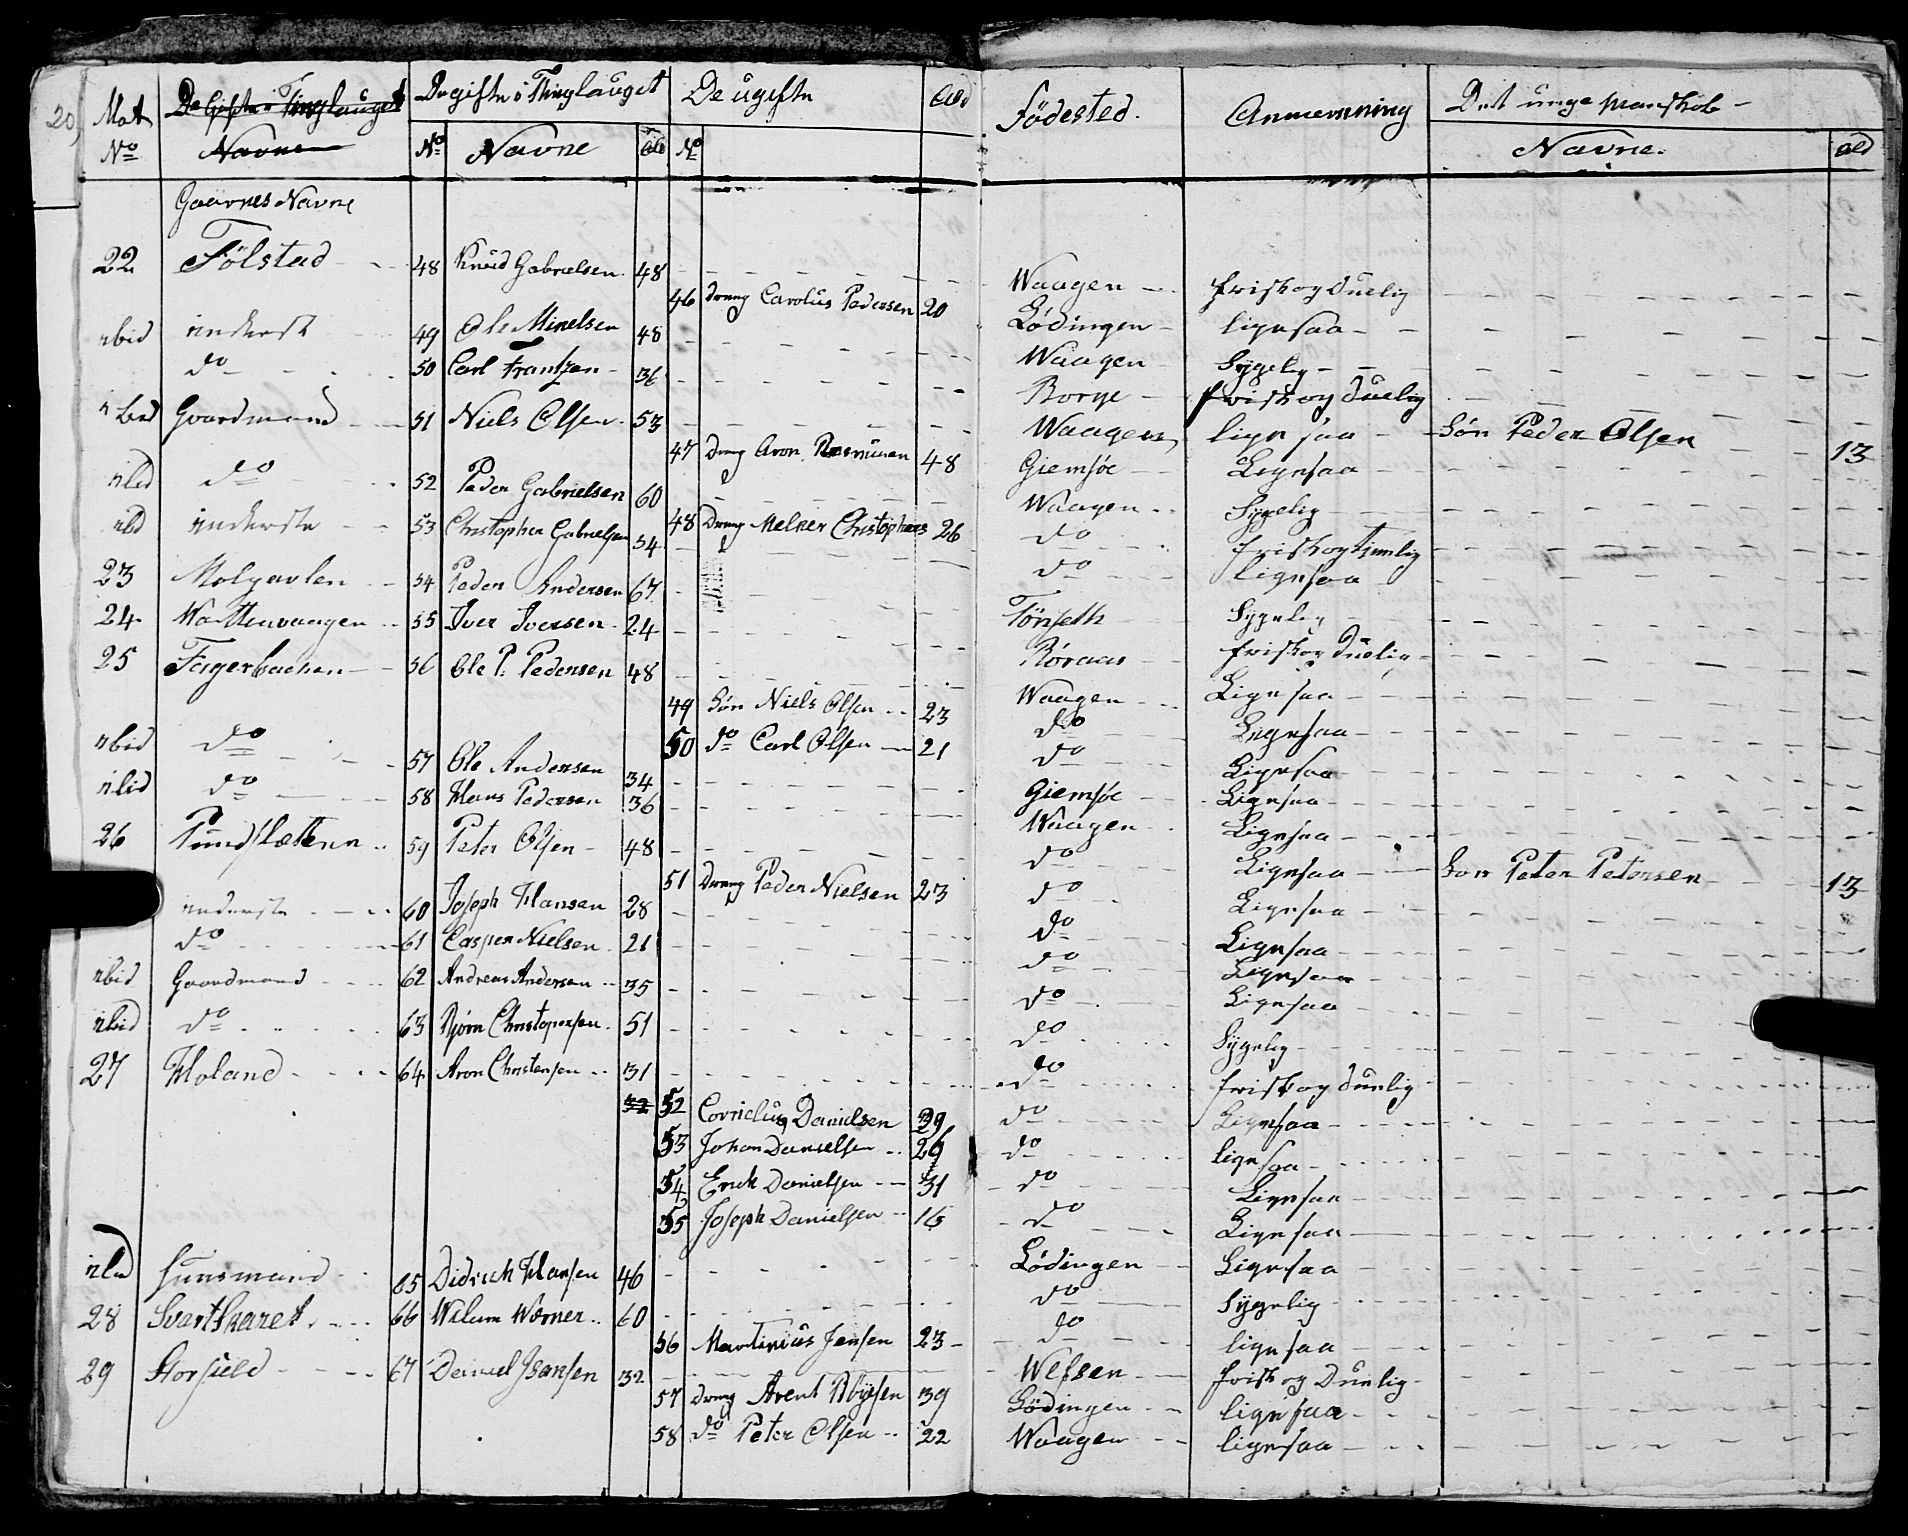 20
Mat No | De Gifte i Tinglauget Navne | De gifte i Thinglauget No Navne Ald | De ugifte No | Ald | Födested. | Anmerkning | Det unge Mandskab - Navne. | Ald
Gaarnes Navne
22 Fölstad 48 Knud Gabrielsen 48 Waagen frisk og Duelig
46 Dreng Carolus Pedersen 20 Lödingen lignsaa
ibid inderst 49 Ole Mikelsen 48 Waagen Sygelig
do 50 Carl Frantzen 36 Borge frisk og Duelig
ibid Gaardmand 51 Niels Olsen 53 Waagen lignsaa Sön Peder Olsen 13
47 Dreng Aron Rasmusen 48 Giemsöe Lignsaa
ibid do 52 Peder Gabrielsen 60 Waagen Sygelig
48 Dreng Melker Christophers 26 do frisk og tienlig
ibd inderste 53 Christopher Gabrielsen 54 do lignsaa
23 Molgavlen 54 Peder Andersen 67 Tönseth Sygelig
24 Wattenvaagen 55 Iver Iversen 24 Röraas frisk og Duelig
25 Fagerbachen 56 Ole P. Pedersen 48 Waagen Lignsaa
49 Sön Niels Olsen 23 do Lignsaa
50 do Carl Olsen 21 do Lignsaa
ibid do 57 Ole Andersen 34 Giemsöe Lignsaa
ibid do 58 Hans Pedersen 36 Waagen Lignsaa
26 Pundslætten 59 Peter Olsen 48 do Lignsaa Sön Peter Petersen 13
51 Dreng Peder Nielsen 23 do Lignsaa
inderste 60 Joseph Hansen 28 do Lignsaa
do 61 Casper Nielsen 21 do Lignsaa
ibid Gaardmand 62 Andreas Andersen 35 do Lignsaa
ibid do 63 Björn Christopersen 51 do Sygelig
27 Holand 64 Aron Christensen 31 do frisk og Duelig
32 52 Cornelius Danielsen 39 do Lignsaa
53 Johan Danielsen 26 do lignsaa
54 Erick Danielsen 31 do Lignsaa
55 Joseph Danielsen 16 do Lignsaa
ibid huusmand 65 Didrich Hansen 46 Lödingen Lignsaa
28 Svartskaret 66 Wilum Wærner 60 do Sygelig
56 Martinius Jensen 23 do lignsaa
29 Storfield 67 Daniel Isansen 32 Wefsen frisk og Duelig
57 Dreng Arent Böyesen 39 Lödingen lignsaa
58 do Peter Olsen 22 Waagen lignsaa